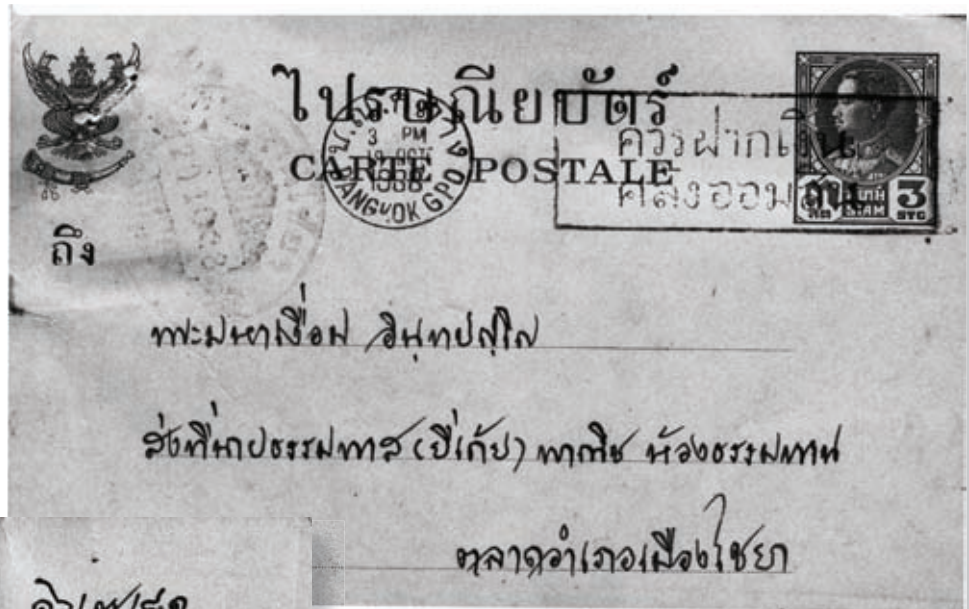 ไปรษณียบัตร์
CARTE POSTALE
ป.ณ. กลาง
3 PM
OCT
BANGKOK GPO
ควรฝากเงิน
คลังออมสิน
SIAM
3
STG
ถึง
พระมหาเงื่อม อินฺทปญฺโญ
ส่งที่นายธรรมทาส (ยี่เก้ย) พาณิช ห้องธรรมทาน
ตลาดอำเภอเมืองไชยา